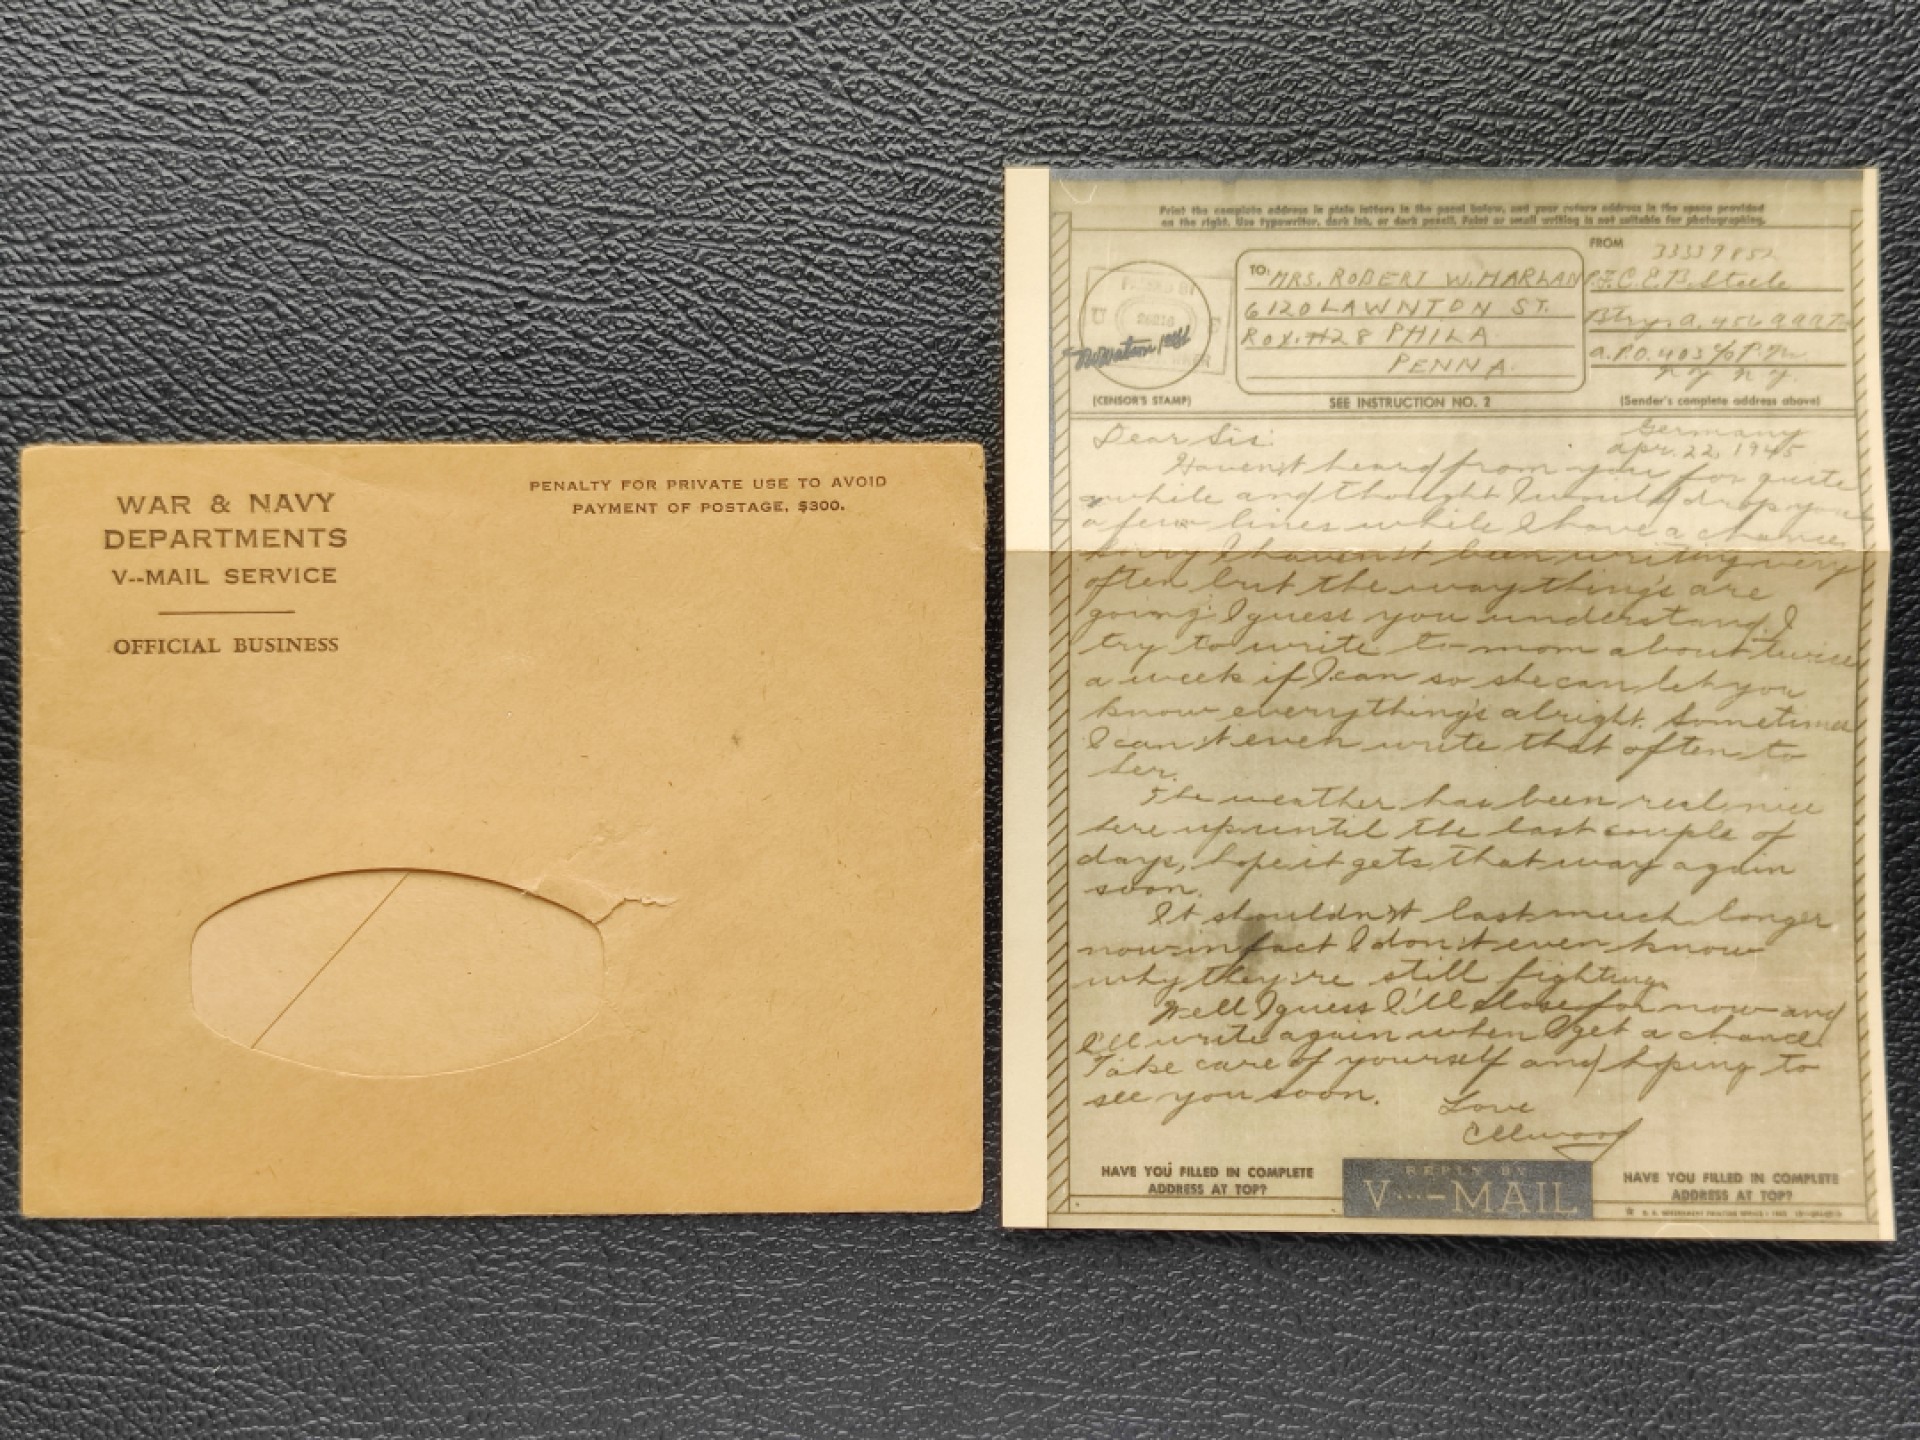 WAR & NAVY
DEPARTMENTS
V--MAIL SERVICE
OFFICIAL BUSINESS
PENALTY FOR PRIVATE USE TO AVOID
PAYMENT OF POSTAGE, $300.
Print the complete address in plain letters in the panel below, and your return address in the space provided
on the right. Use typewriter, dark ink, or dark pencil. Faint or small writing is not suitable for photographing.
PASSED BY
U S
(CENSOR'S STAMP)
TO:
MRS. ROBERT W. HARLAN
6120 LAWNTON ST.
ROX. #28 PHILA
PENNA.
SEE INSTRUCTION NO. 2
FROM
33339852
P.F.C. E. B. Steele
Btry. A. 456
A.P.O. 403 c/o P.M.
N.Y. N.Y.
(Sender's complete address above)
Germany
Apr. 22, 1945
Dear Sis:
Haven't heard from you for quite
awhile and thought I would drop you
a few lines while I have a chance.
Sorry I haven't been writing very
often but the way things are
going I guess you understand. I
try to write to mom about twice
a week if I can so she can let you
know everything's alright. Sometimes
I can't even write that often to
her.
The weather has been real nice
here up until the last couple of
days, hope it gets that way again
soon.
It shouldn't last much longer
now in fact I don't even know
why they're still fighting.
Well I guess I'll close for now and
I'll write again when I get a chance.
Take care of yourself and hoping to
see you soon.
Love
Ellwood
HAVE YOU FILLED IN COMPLETE
ADDRESS AT TOP?
REPLY BY
V···—MAIL
HAVE YOU FILLED IN COMPLETE
ADDRESS AT TOP?
U. S. GOVERNMENT PRINTING OFFICE